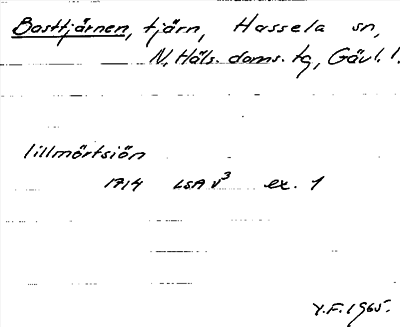 Basttjärnen, tjärn, Hassela sn,
N. Häls. doms. tg, Gävl. l.
lillmörtsiön
1714 LSA V³ ex. 1
Y.F. 1965.